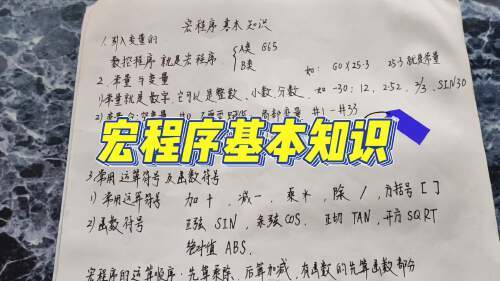 宏程序基本知识
1.引入变量的
数控程序就是宏程序 { A类 G65
B类 如: G0 X25.3 25.3就是常量
2.常量与变量
1)常量就是数字,它可以是整数、小数、分数. 如 -30; 12, 2.52, 2/3、SIN30
#1-#33
宏程序基本知识
3.常用运算符号及函数符号
1)常用运算符号 加+, 减-, 乘*, 除/, 方括号[]
2)函数符号 正弦SIN, 余弦COS. 正切TAN, 开方SQRT
绝对值ABS.
宏程序的运算顺序:先算乘除,后算加减,有函数的先算函数部分